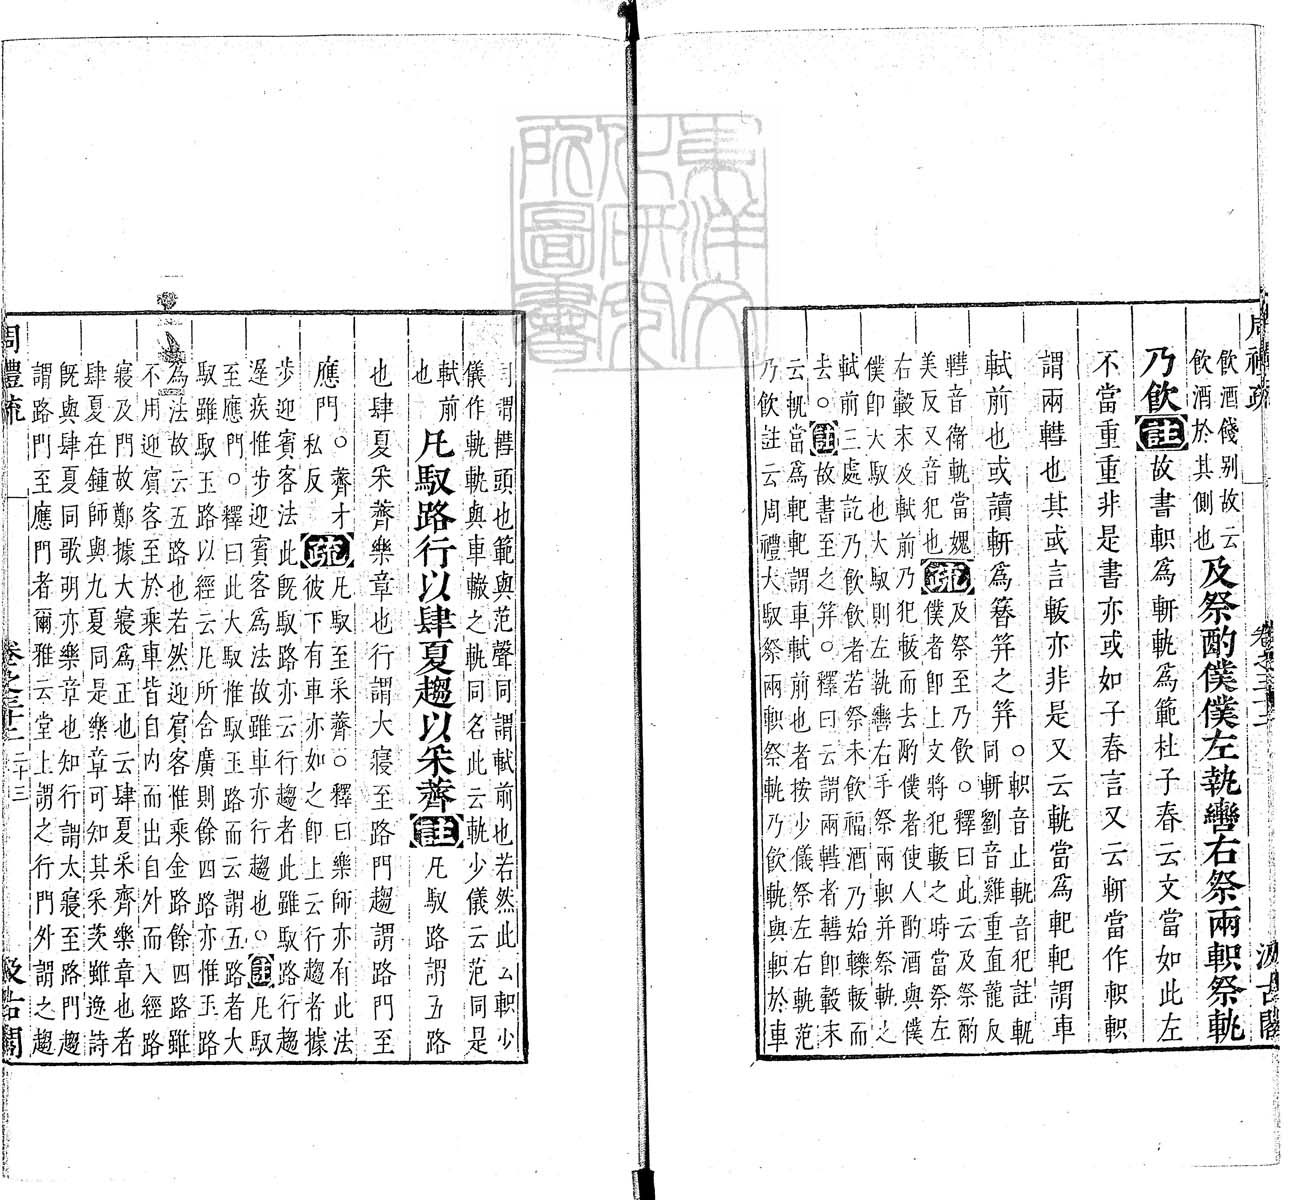 飲酒餞别故云
飲酒於其側也
及祭酌僕僕左執轡右祭兩軹祭軓
乃飲註故書軹爲軒軓爲範杜子春云文當如此左
不當重重非是書亦或如子春言又云軒當作軹軹
謂兩轊也其或言軷亦非是又云軓當爲軋軋謂車
軾前也或讀軒爲簪筓之筓
○軹音止軓音犯註軓
同軒劉音雞重直龍反
轊音衛軓當媿
美反又音犯也
疏及祭至乃飲○釋曰此云及祭酌
僕者卽上文將犯軷之時當祭左
右轂末及軾前乃犯軷而去酌僕者使人酌酒與僕
僕卽大馭也大馭則左執轡右手祭兩軹并祭軓之
軾前三處訖乃飲飲者若祭末飲福酒乃始轢軷而
去○註故書至之筓○釋曰云謂兩轊者轊卽轂末
云軓當爲軋軋謂車軾前也者按少儀祭左右軌范
乃飲註云周禮大馭祭兩軹祭軓乃飲軌與軹於車
同謂轊頭也範與范聲同謂軾前也若然此云軹少
儀作軌軌與車轍之軌同名此云軓少儀云范同是
軾前
也
凡馭路行以肆夏趨以采薺註凡馭路謂五路
也肆夏采薺樂章也行謂大寢至路門趨謂路門至
應門
○薺才
私反
疏凡馭至采薺○釋曰樂師亦有此法
彼下有車亦如之卽上云行趨者據
步迎賓客法此旣馭路亦云行趨者此雖馭路行趨
遲疾惟步迎賓客爲法故雖車亦行趨也○註凡馭
至應門○釋曰此大馭惟馭玉路而云謂五路者大
馭雖馭玉路以經云凡所含廣則餘四路亦惟玉路
爲法故云五路也若然迎賓客惟乘金路餘四路雖
不用迎賓客至於乘車皆自内而出自外而入經路
寢及門故鄭據大寢爲正也云肆夏采齊樂章也者
肆夏在鍾師與九夏同是樂章可知其采茨雖逸詩
旣與肆夏同歌明亦樂章也知行謂大寢至路門趨
謂路門至應門者爾雅云堂上謂之行門外謂之趨
周禮疏 卷之三十二 二十三 汲古閣